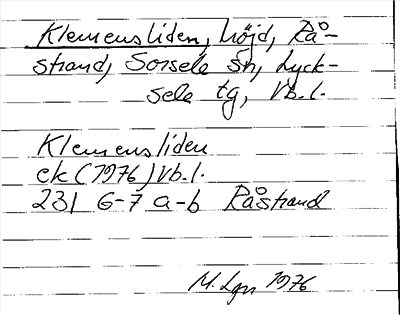 Klemensliden, höjd, Rå-
strand, Sorsele sn, Lyck-
sele tg, Vb.l.
Klemensliden
ek (1976) Vb.l.
231 6-7 a-b Råstrand
M. Lgn 1976